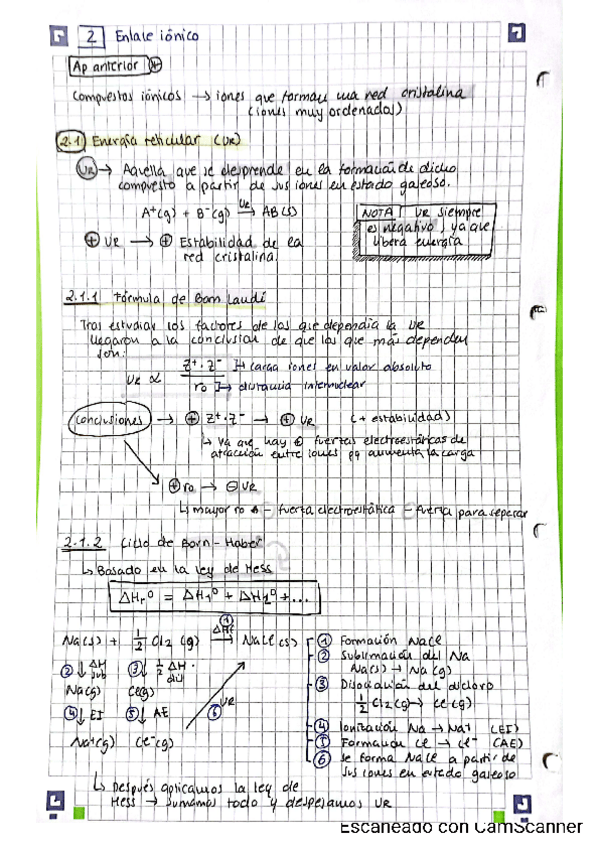 2 Enlace iónico
Ap anterior *
Compuestos iónicos → iones que forman una red cristalina
(iones muy ordenados)
2.1 Energía reticular (UR)
UR → Aquella que se desprende en la formación de dicho
compuesto a partir de sus iones en estado gaseoso.
A+(g) + B-(g) UR→ AB(s)
NOTA UR siempre
es negativo, ya que
libera energía
⊕ UR → ⊕ Estabilidad de la
red cristalina.
2.1.1 Fórmula de Born Landé
Tras estudiar los factores de los que dependía la UR
llegaron a la conclusión de que los que más dependen
son:
UR α Z+·Z- / r0
→ carga iones en valor absoluto
→ distancia internuclear
Conclusiones → ⊕ Z+·Z- → ⊕ UR (+ estabilidad)
↳ Ya que hay ⊕ fuerzas electroestáticas de
atracción entre iones pq aumenta la carga
⊕ r0 → ⊖ UR
↳ mayor ro - fuerza electroestática - fuerza para separar
2.1.2 Ciclo de Born-Haber
↳ Basado en la ley de Hess
ΔHr0 = ΔH10 + ΔH20 + ...
Na(s) + 1/2 Cl2 (g) ① ΔHf→ NaCl(s)
② ↓ ΔH sub ③ ↓ 1/2 ΔH dis
Na(g) Cl(g)
④ ↓ EI ⑤ ↓ AE ⑥ UR
Na+(g) Cl-(g)
① Formación NaCl
② Sublimación del Na
Na(s) → Na(g)
③ Disociación del dicloro
1/2 Cl2(g) → Cl(g)
④ Ionización Na → Na+ (EI)
⑤ Formación Cl → Cl- (AE)
⑥ Se forma NaCl a partir de
sus iones en estado gaseoso
↳ Después aplicamos la ley de
Hess → sumamos todo y despejamos UR
Escaneado con CamScanner